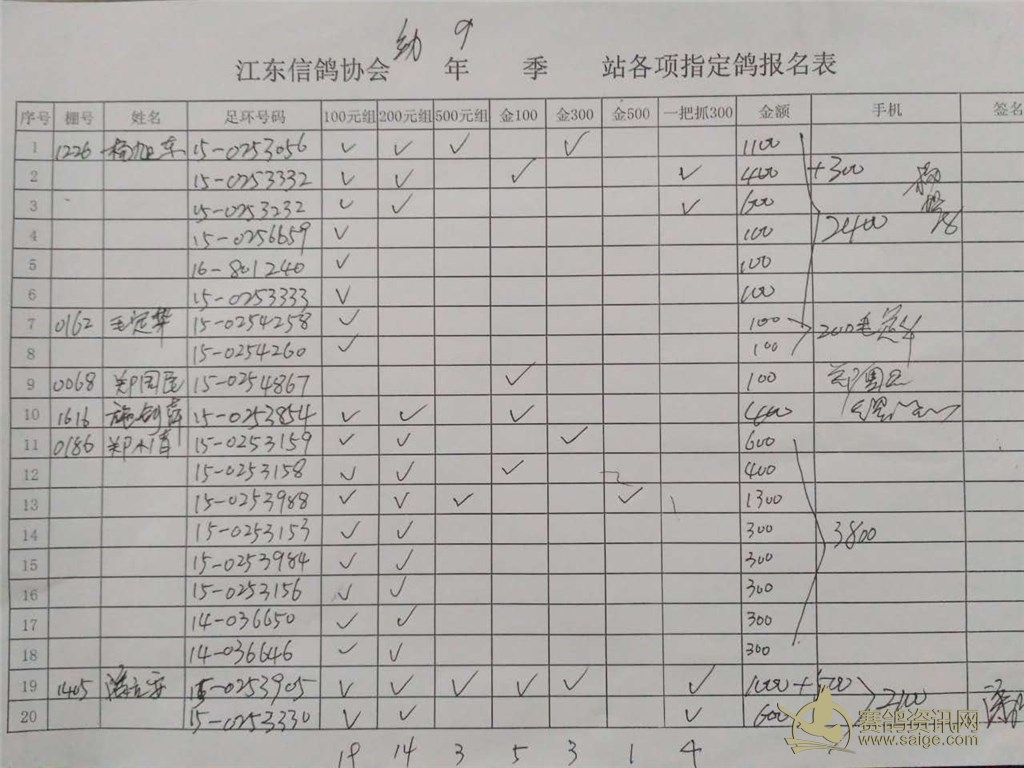 幼 9
江东信鸽协会 年 季 站各项指定鸽报名表
序号 棚号 姓名 足环号码 100元组 200元组 500元组 金100 金300 金500 一把抓300 金额 手机 签名
1 1226 15-0253056 ✓ ✓ ✓ ✓ 1100
2 15-0253332 ✓ ✓ ✓ ✓ 400 +300
3 15-0253232 ✓ ✓ ✓ 600
4 15-0256659 ✓ 100 2400
5 16-801240 ✓ 100
6 15-0253333 ✓ 100
7 0162 毛定华 15-0254258 ✓ 100 200 毛定华
8 15-0254260 ✓ 100
9 0068 郑国民 15-0254867 ✓ 100 郑国民
10 1616 15-0253854 ✓ ✓ ✓ 400
11 0186 15-0253159 ✓ ✓ ✓ 600
12 15-0253158 ✓ ✓ ✓ 400
13 15-0253988 ✓ ✓ ✓ ✓ 1300
14 15-0253153 ✓ ✓ 300 3800
15 15-0253984 ✓ ✓ 300
16 15-0253156 ✓ ✓ 300
17 14-036650 ✓ ✓ 300
18 14-036646 ✓ ✓ 300
19 1405 15-0253905 ✓ ✓ ✓ ✓ ✓ ✓ 1000+500 2100
20 15-0253330 ✓ ✓ ✓ 600
19 14 3 5 3 1 4
赛鸽资讯网
www.saige.com